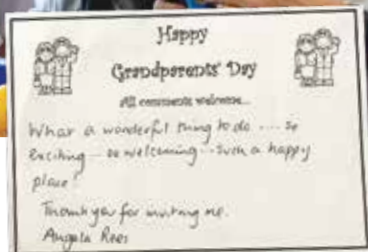 Happy
Grandparents' Day
All comments welcome...
What a wonderful thing to do .... so
exciting ... so welcoming ... such a happy
place!
Thank you for inviting me.
Angela Rees